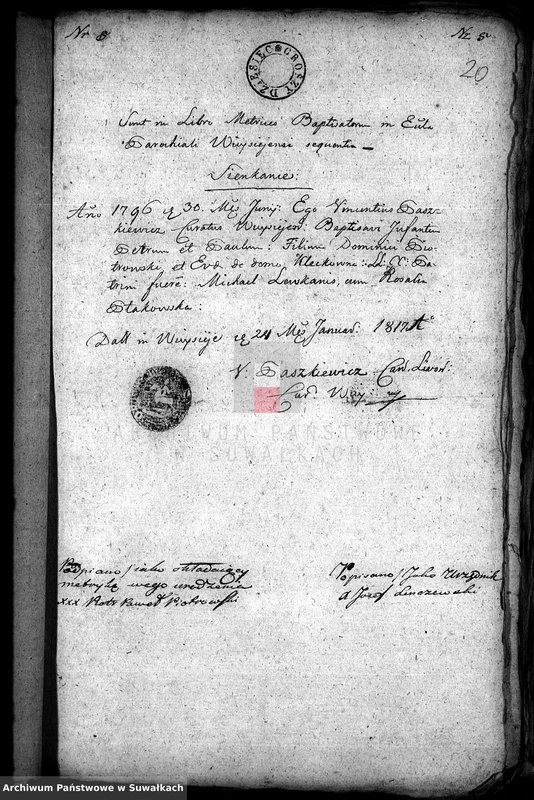 Nr 8
Nr 5
20
DZIESIĘC GROSZY
Sunt in Libro Metrices Baptisatorum in Eccla
Parochiali Wizysiejensi sequentia —
Sienkanie:
Año 1796 30. Junij: Ego Vincentius Pasz-
kiewicz Curatus Baptisavi Infantem
Petrum et Paulum: Filium Dominici Pio-
trowski, et Eva de domo Kleckowne: LL. CC: Pa-
trini fuere: Michael Lewkanis, cum Rosalia
Makowska:
Datt in 24 Januar: 1817
V. Paszkiewicz Can: Livon:
Cur:
ARCHIWUM PAŃSTWOWE
W SUWAŁKACH
Podpiano / iako składaiący
metrykę swego urodzenia
xxx Piotr Paweł Piotrowski
Popisano / Jako Urzędnik
Jozef Linczewski
Archiwum Państwowe w Suwałkach